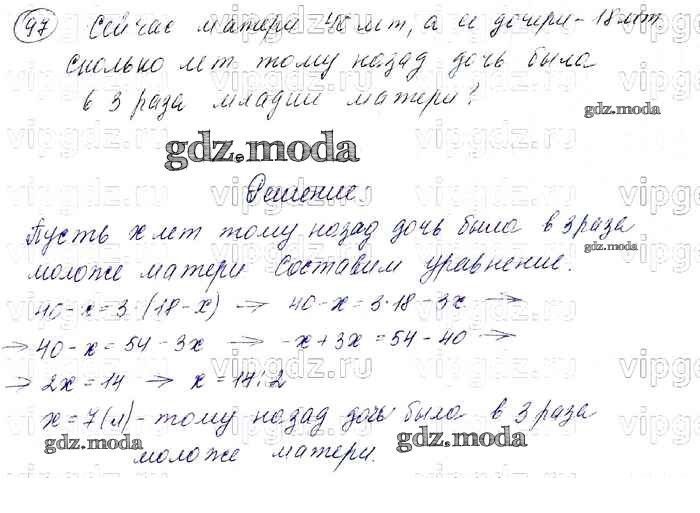 97 Сейчас матери 40 лет, а дочери - 18 лет.
сколько лет тому назад дочь была
в 3 раза младше матери?
gdz.moda
gdz.moda
Решение:
Пусть x лет тому назад дочь была в 3 раза
gdz.moda
моложе матери Составим уравнение.
40-x=3·(18-x) → 40-x=3·18-3x →
→ 40-x=54-3x → -x+3x=54-40 →
→ 2x=14 → x=14:2
x=7(л)-тому назад дочь была в 3 раза
gdz.moda
моложе матери.
gdz.moda